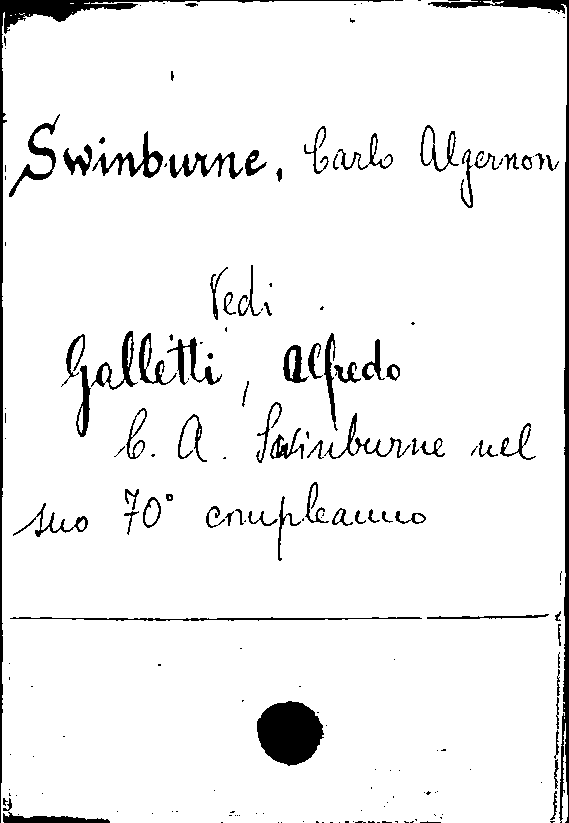 Swinburne, Carlo Algernon
Vedi
Galletti, Alfredo
C. A. Swinburne nel
suo 70° compleanno